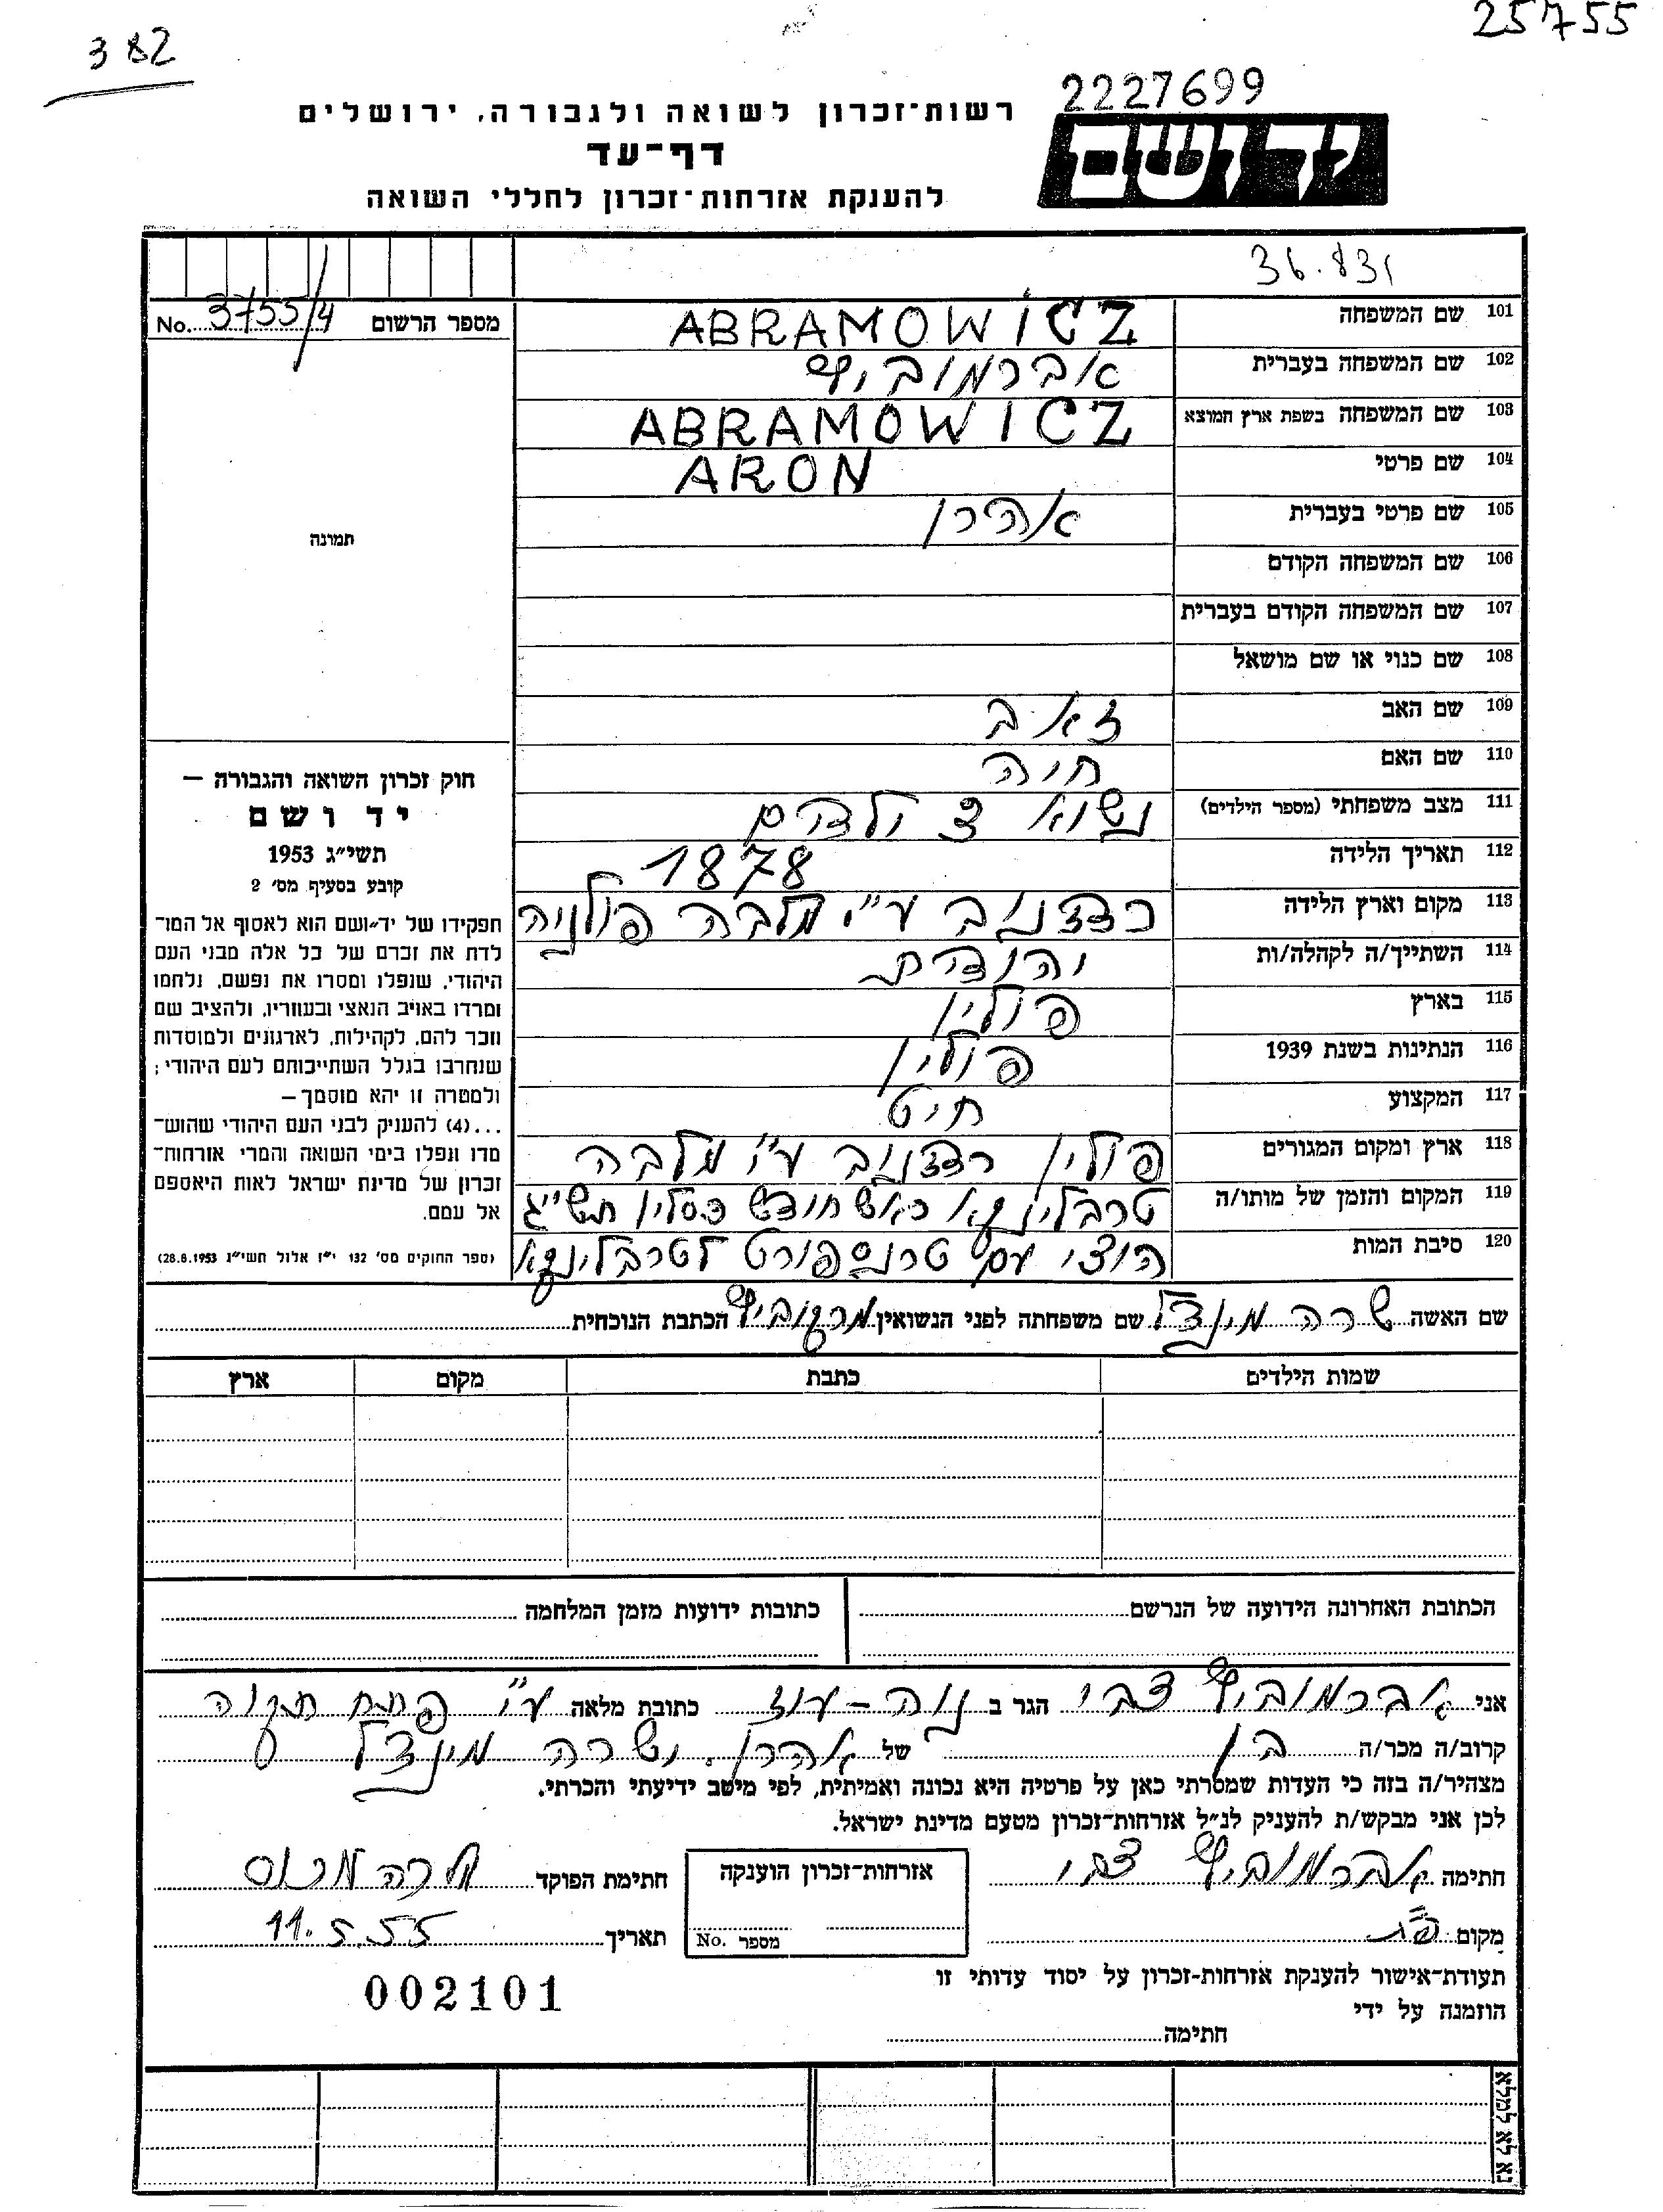 25755
382
2227699
רשות־זכרון לשואה ולגבורה, ירושלים
יד ושם
דף־עד
להענקת אזרחות־זכרון לחללי השואה
36.831
מספר הרשום No. 3755/4
101 שם המשפחה ABRAMOWICZ
102 שם המשפחה בעברית אברמוביץ
103 שם המשפחה בשפת ארץ המוצא ABRAMOWICZ
104 שם פרטי ARON
105 שם פרטי בעברית אהרן
תמונה
106 שם המשפחה הקודם
107 שם המשפחה הקודם בעברית
108 שם כנוי או שם מושאל
109 שם האב זאב
110 שם האם חיה
111 מצב משפחתי (מספר הילדים) נשוא 3 ילדים
112 תאריך הלידה 1878
113 מקום וארץ הלידה רצצנוב ע"י מלבה פולניה
114 השתייך/ה לקהלה/ות יהודית
115 בארץ פולין
116 הנתינות בשנת 1939 פולין
117 המקצוע חיט
118 ארץ ומקום המגורים פולין רצצנוב ע"י מלבה
119 המקום והזמן של מותו/ה טרבלינקא ראש חודש כסלין תש"ג
120 סיבת המות הוצי עם טרנספורט לטרבלינקא
חוק זכרון השואה והגבורה —
יד ושם
תשי״ג 1953
קובע בסעיף מס׳ 2
תפקידו של יד־ושם הוא לאסוף אל המו־
לדת את זכרם של כל אלה מבני העם
היהודי, שנפלו ומסרו את נפשם, נלחמו
ומרדו באויב הנאצי ובעוזריו, ולהציב שם
וזכר להם, לקהילות, לארגונים ולמוסדות
שנחרבו בגלל השתייכותם לעם היהודי;
ולמטרה זו יהא מוסמך —
...(4) להעניק לבני העם היהודי שהוש־
מדו ונפלו בימי השואה והמרי אזרחות־
זכרון של מדינת ישראל לאות היאספם
אל עמם.
(ספר החוקים מס׳ 132 י״ז אלול תשי״ג 28.8.1953)
שם האשה שרה מינצל שם משפחתה לפני הנשואין מרקוביץ הכתבת הנוכחית
שמות הילדים כתבת מקום ארץ
הכתובת האחרונה הידועה של הנרשם כתובות ידועות מזמן המלחמה
אני אברמוביץ צבי הגר ב נוה-עוז כתובת מלאה ע"י פתח תקוה
קרוב/ה מכר/ה בן של אהרן ושרה מינצל
מצהיר/ה בזה כי העדות שמסרתי כאן על פרטיה היא נכונה ואמיתית, לפי מיטב ידיעתי והכרתי.
לכן אני מבקש/ת להעניק לנ״ל אזרחות־זכרון מטעם מדינת ישראל.
חתימה אברמוביץ צבי אזרחות־זכרון הוענקה חתימת הפוקד
מקום פ"ת מספר No. תאריך 11.5.55
תעודת־אישור להענקת אזרחות־זכרון על יסוד עדותי זו
הוזמנה על ידי
חתימה
002101
נא לא למלא